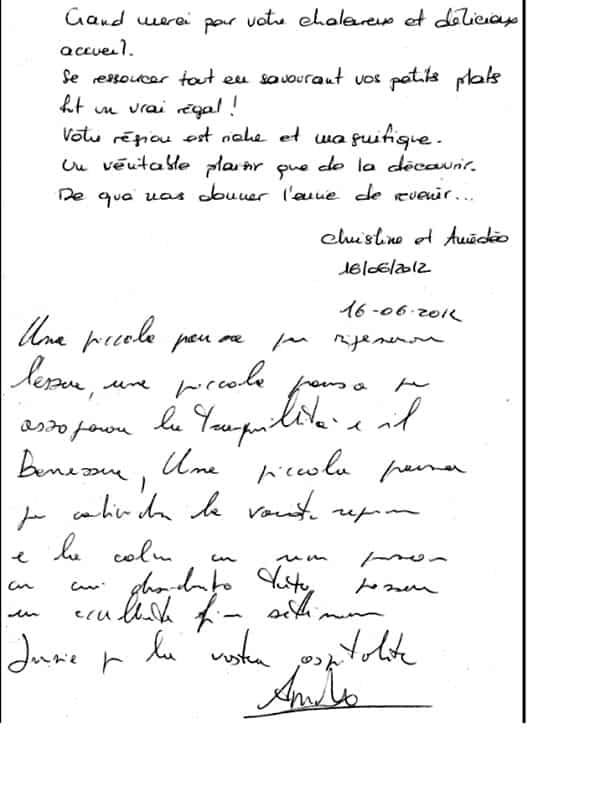 Grand merci pour votre chaleureux et délicieux
accueil.
Se ressourcer tout en savourant vos petits plats
fut un vrai régal !
Votre région est riche et magnifique.
Un véritable plaisir que de la découvrir.
De quoi nous donner l'envie de revenir...
Christine et Amédéo
16/06/2012
16-06-2012
Una piccola pausa per rigenerare
l'essere, una piccola pausa per
assaporare la tranquillità e il
benessere, Una piccola pausa
per la vostra
e la
tutto
un eccellente fine settimana
per la vostra ospitalità